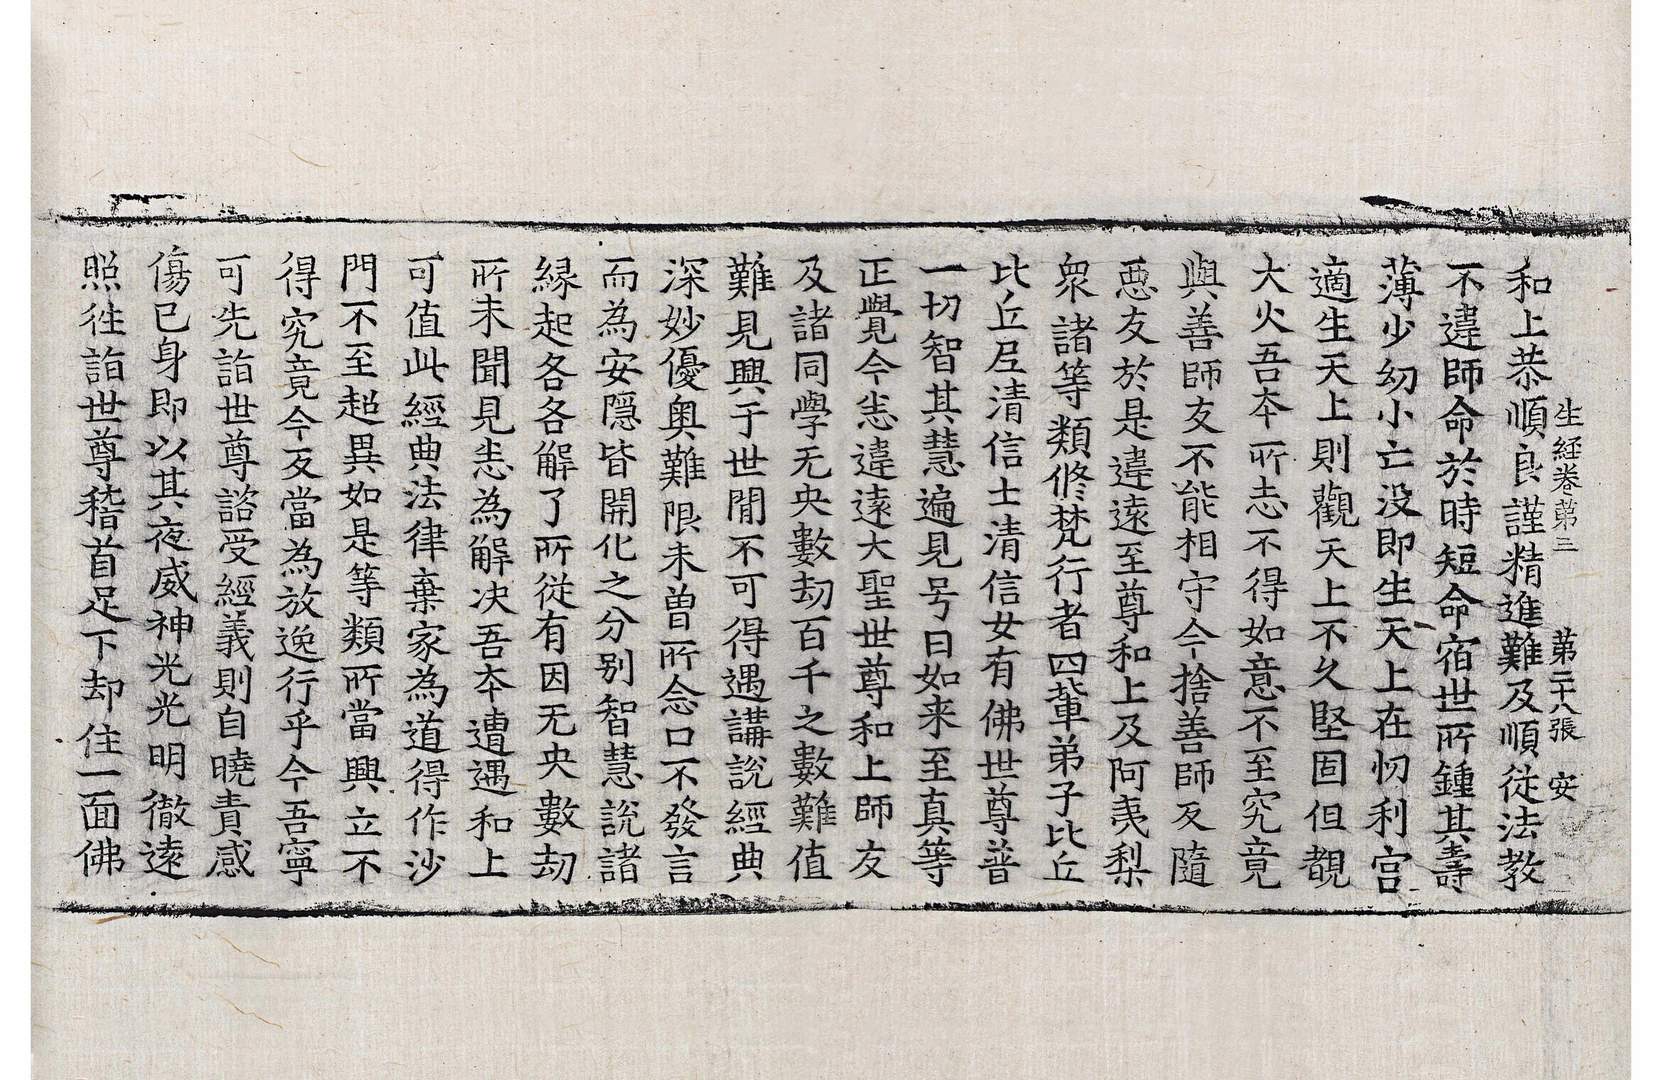 生経卷第三　第二十八張　安
和上恭順良謹精進難及順從法教
不違師命於時短命宿世所鍾其壽
薄少幼小亡没即生天上在忉利宫
適生天上則觀天上不久堅固但覩
大火吾夲所志不得如意不至究竟
與善師友不能相守今捨善師反隨
惡友於是違遠至尊和上及阿夷梨
衆諸等類修梵行者四軰弟子比丘
比丘尼清信士清信女有佛世尊普
一切智其慧遍見号曰如来至真等
正覺今恙違遠大聖世尊和上師友
及諸同學无央數劫百千之數難值
難見興于世閒不可得遇講說經典
深妙優奥難限未曽所念口不發言
而為安隱皆開化之分别智慧說諸
縁起各各解了所從有因无央數劫
所未聞見恙為解决吾夲遭遇和上
可值此經典法律棄家為道得作沙
門不至超異如是等類所當興立不
得究竟今反當為放逸行乎今吾寧
可先詣世尊諮受經義則自曉責感
傷已身即以其夜威神光光明徹逺
照徃詣世尊稽首足下却住一面佛